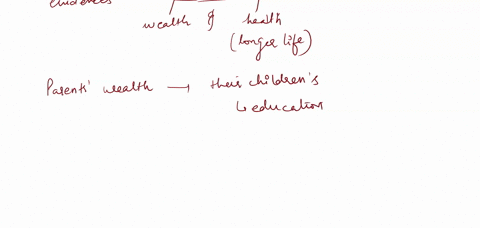 evidences
wealth & health
(longer life)
Parents' wealth → their children's
↳ education